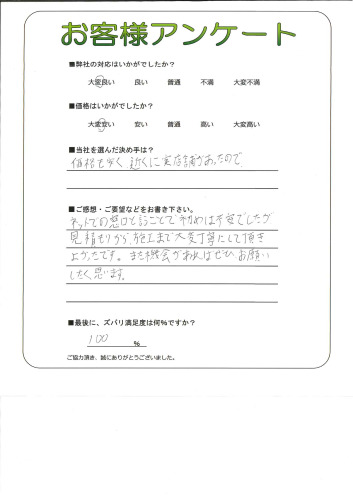 お客様アンケート
■弊社の対応はいかがでしたか？
大変良い 良い 普通 不満 大変不満
■価格はいかがでしたか？
大変安い 安い 普通 高い 大変高い
■当社を選んだ決め手は？
価格も安く、近くに実店舗があったので、
■ご感想・ご要望などをお書き下さい。
ネットでの窓口ということで初めは不安でしたが
見積もりから施工まで大変丁寧にして頂き
よかったです。また機会があればぜひお願い
したく思います。
■最後に、ズバリ満足度は何%ですか？
100 %
ご協力頂き、誠にありがとうございました。